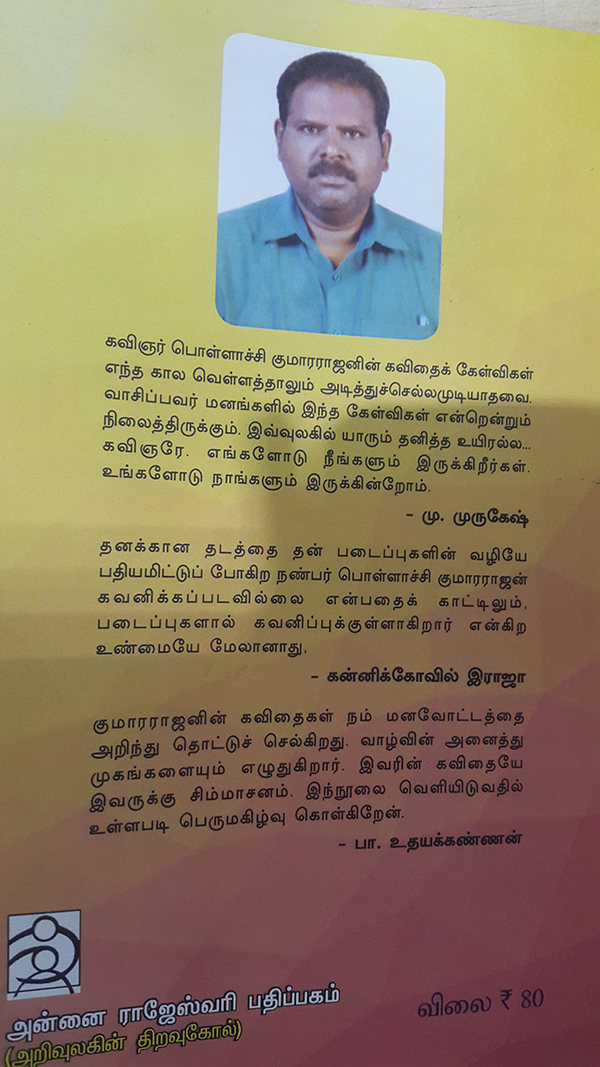 கவிஞர் பொள்ளாச்சி குமாரராஜனின் கவிதைக் கேள்விகள்
எந்த கால வெள்ளத்தாலும் அடித்துச்செல்லமுடியாதவை.
வாசிப்பவர் மனங்களில் இந்த கேள்விகள் என்றென்றும்
நிலைத்திருக்கும். இவ்வுலகில் யாரும் தனித்த உயிரல்ல...
கவிஞரே. எங்களோடு நீங்களும் இருக்கிறீர்கள்.
உங்களோடு நாங்களும் இருக்கின்றோம்.
– மு. முருகேஷ்
தனக்கான தடத்தை தன் படைப்புகளின் வழியே
பதியமிட்டுப் போகிற நண்பர் பொள்ளாச்சி குமாரராஜன்
கவனிக்கப்படவில்லை என்பதைக் காட்டிலும்,
படைப்புகளால் கவனிப்புக்குள்ளாகிறார் என்கிற
உண்மையே மேலானாது,
– கன்னிக்கோவில் இராஜா
குமாரராஜனின் கவிதைகள் நம் மனவோட்டத்தை
அறிந்து தொட்டுச் செல்கிறது. வாழ்வின் அனைத்து
முகங்களையும் எழுதுகிறார். இவரின் கவிதையே
இவருக்கு சிம்மாசனம். இந்நூலை வெளியிடுவதில்
உள்ளபடி பெருமகிழ்வு கொள்கிறேன்.
– பா. உதயக்கண்ணன்
அன்னை ராஜேஸ்வரி பதிப்பகம்
(அறிவுலகின் திறவுகோல்)
விலை ₹ 80